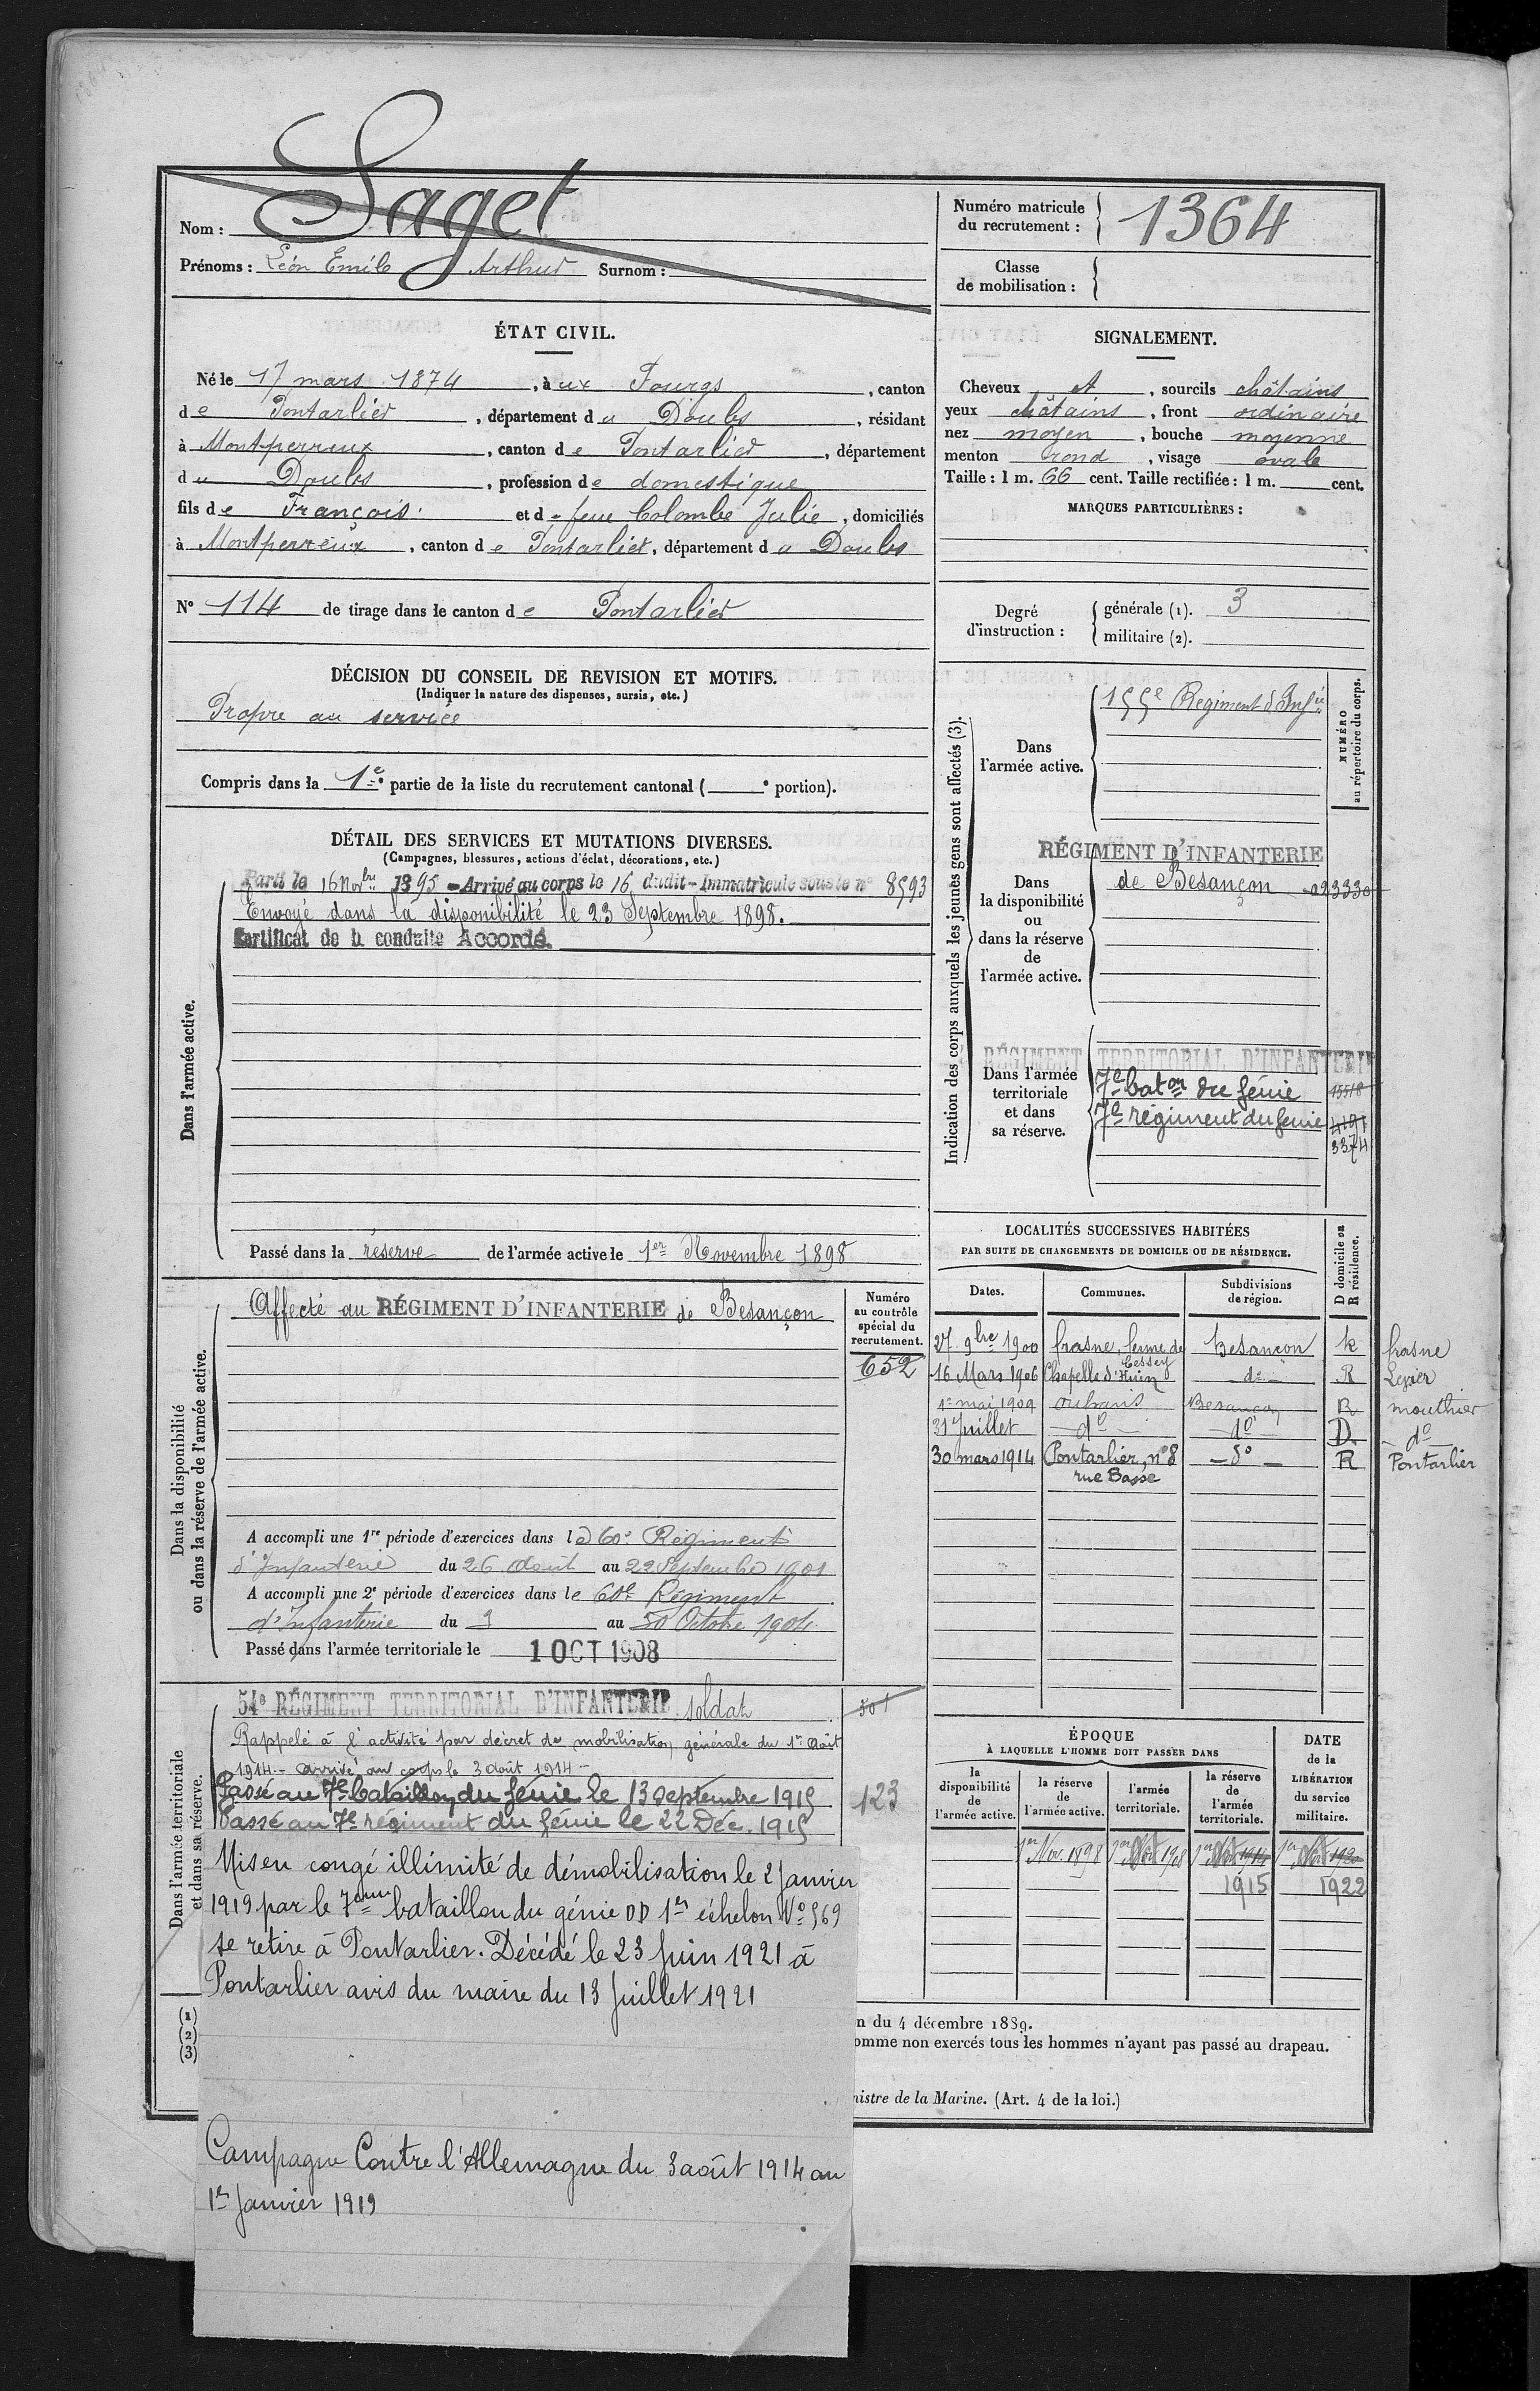 Nom : Saget
Prénoms : Léon Emile Arthur Surnom :
Numéro matricule du recrutement : 1364
Classe de mobilisation :
ÉTAT CIVIL.
Né le 17 mars 1874, à ux Fourgs, canton
de Pontarlier, département du Doubs, résidant
à Montperreux, canton de Pontarlier, département
du Doubs, profession de domestique
fils de François et d feue Colombe Julie, domiciliés
à Montperreux, canton de Pontarlier, département du Doubs
N° 114 de tirage dans le canton de Pontarlier
SIGNALEMENT.
Cheveux et, sourcils châtains
yeux châtains, front ordinaire
nez moyen, bouche moyenne
menton rond, visage ovale
Taille : 1 m. 66 cent. Taille rectifiée : 1 m. cent.
MARQUES PARTICULIÈRES :
Degré d'instruction : générale (1). 3
militaire (2).
DÉCISION DU CONSEIL DE REVISION ET MOTIFS.
(Indiquer la nature des dispenses, sursis, etc.)
Propre au service
Compris dans la 1e partie de la liste du recrutement cantonal ( e portion).
DÉTAIL DES SERVICES ET MUTATIONS DIVERSES.
(Campagnes, blessures, actions d'éclat, décorations, etc.)
Dans l'armée active.
Parti le 16 Novbre 1895 - Arrivé au corps le 16 dudit - Immatriculé sous le n° 8593
Envoyé dans la disponibilité le 23 Septembre 1898.
Certificat de b. conduite Accordé.
Passé dans la réserve de l'armée active le 1er Novembre 1898
Indication des corps auxquels les jeunes gens sont affectés (3).
NUMÉRO au répertoire du corps.
Dans l'armée active.
155e Régiment d'Infie
Dans la disponibilité ou dans la réserve de l'armée active.
RÉGIMENT D'INFANTERIE
de Besançon 023330
Dans l'armée territoriale et dans sa réserve.
RÉGIMENT TERRITORIAL D'INFANTERIE
7e baton du génie 15518
7e régiment du génie 4191
3374
Dans la disponibilité ou dans la réserve de l'armée active.
Affecté au RÉGIMENT D'INFANTERIE de Besançon
Numéro au contrôle spécial du recrutement.
652
A accompli une 1re période d'exercices dans le 60e Régiment
d'Infanterie du 26 Août au 22 Septembre 1901
A accompli une 2e période d'exercices dans le 60e Régiment
d'Infanterie du 3 au 30 Octobre 1904
Passé dans l'armée territoriale le 1 OCT 1908
LOCALITÉS SUCCESSIVES HABITÉES
PAR SUITE DE CHANGEMENTS DE DOMICILE OU DE RÉSIDENCE.
Dates. Communes. Subdivisions de région. D domicile ou R résidence.
27 9bre 1900 frasne, ferme de Cessey Besançon R frasne
16 Mars 1906 Chapelle d'Huin do R Levier
1er mai 1909 ouhans Besançon R mouthier
31 Juillet do do D do
30 mars 1914 Pontarlier, n° 8 rue Basse do R Pontarlier
Dans l'armée territoriale et dans sa réserve.
54e RÉGIMENT TERRITORIAL D'INFANTERIE soldat 501
Rappelé à l'activité par décret de mobilisation générale du 1er Août
1914 - arrivé au corps le 3 août 1914 -
Passé au 7e bataillon du génie le 13 septembre 1915 123
Passé au 7e régiment du génie le 22 Déc. 1915
Mis en congé illimité de démobilisation le 2 Janvier
1919 par le 7ème bataillon du génie DD 1er échelon N° 569
se retire à Pontarlier. Décédé le 23 Juin 1921 à
Pontarlier avis du maire du 13 Juillet 1921
Campagne Contre l'Allemagne du 3 août 1914 au
1er Janvier 1919
ÉPOQUE
À LAQUELLE L'HOMME DOIT PASSER DANS
la disponibilité de l'armée active. la réserve de l'armée active. l'armée territoriale. la réserve de l'armée territoriale.
DATE de la LIBÉRATION du service militaire.
1er Nov. 1898 1er 1908 1er 1914 1er 1920
1915 1922
(1)
(2)
(3)
n du 4 décembre 1889.
omme non exercés tous les hommes n'ayant pas passé au drapeau.
nistre de la Marine. (Art. 4 de la loi.)